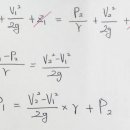 V₁²/2g + z₁ = P₂/γ + V₂²/2g +
P₂/γ = V₂²-V₁²/2g
P₁ = V₂²-V₁²/2g × γ + P₂